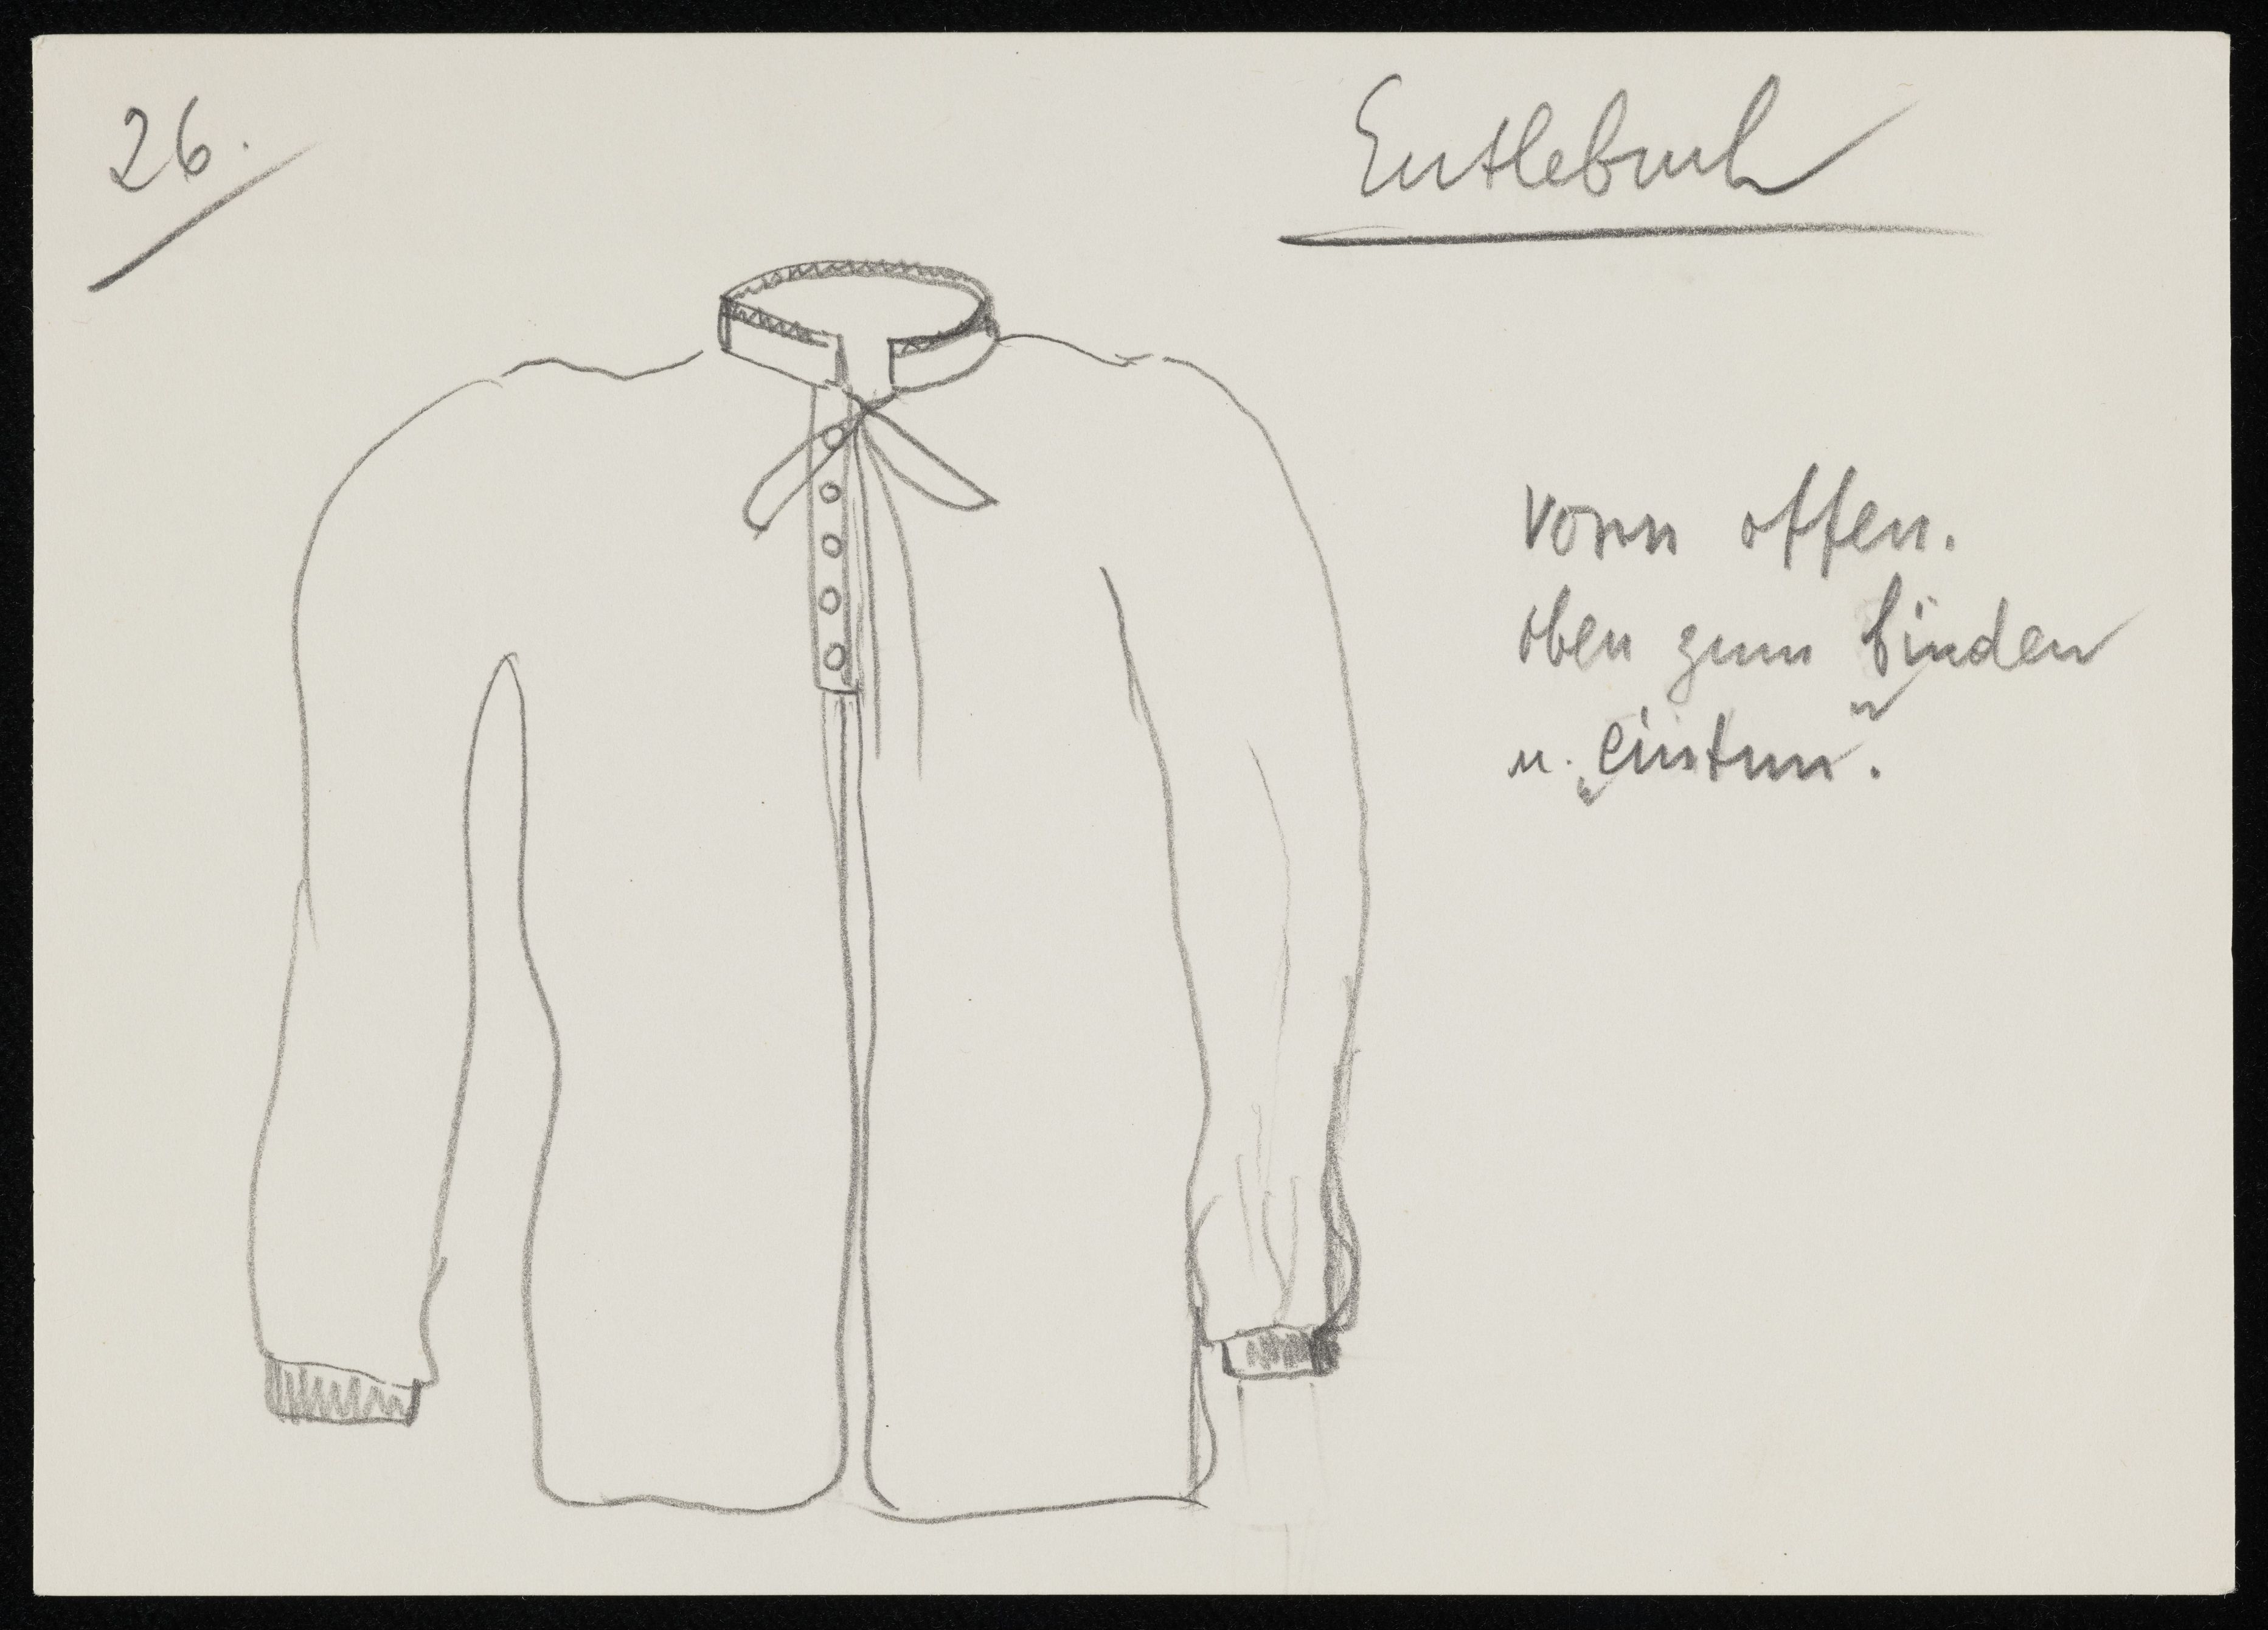 26.
Entlebuch
vorn offen.
oben zum binden
u. „eintun“.